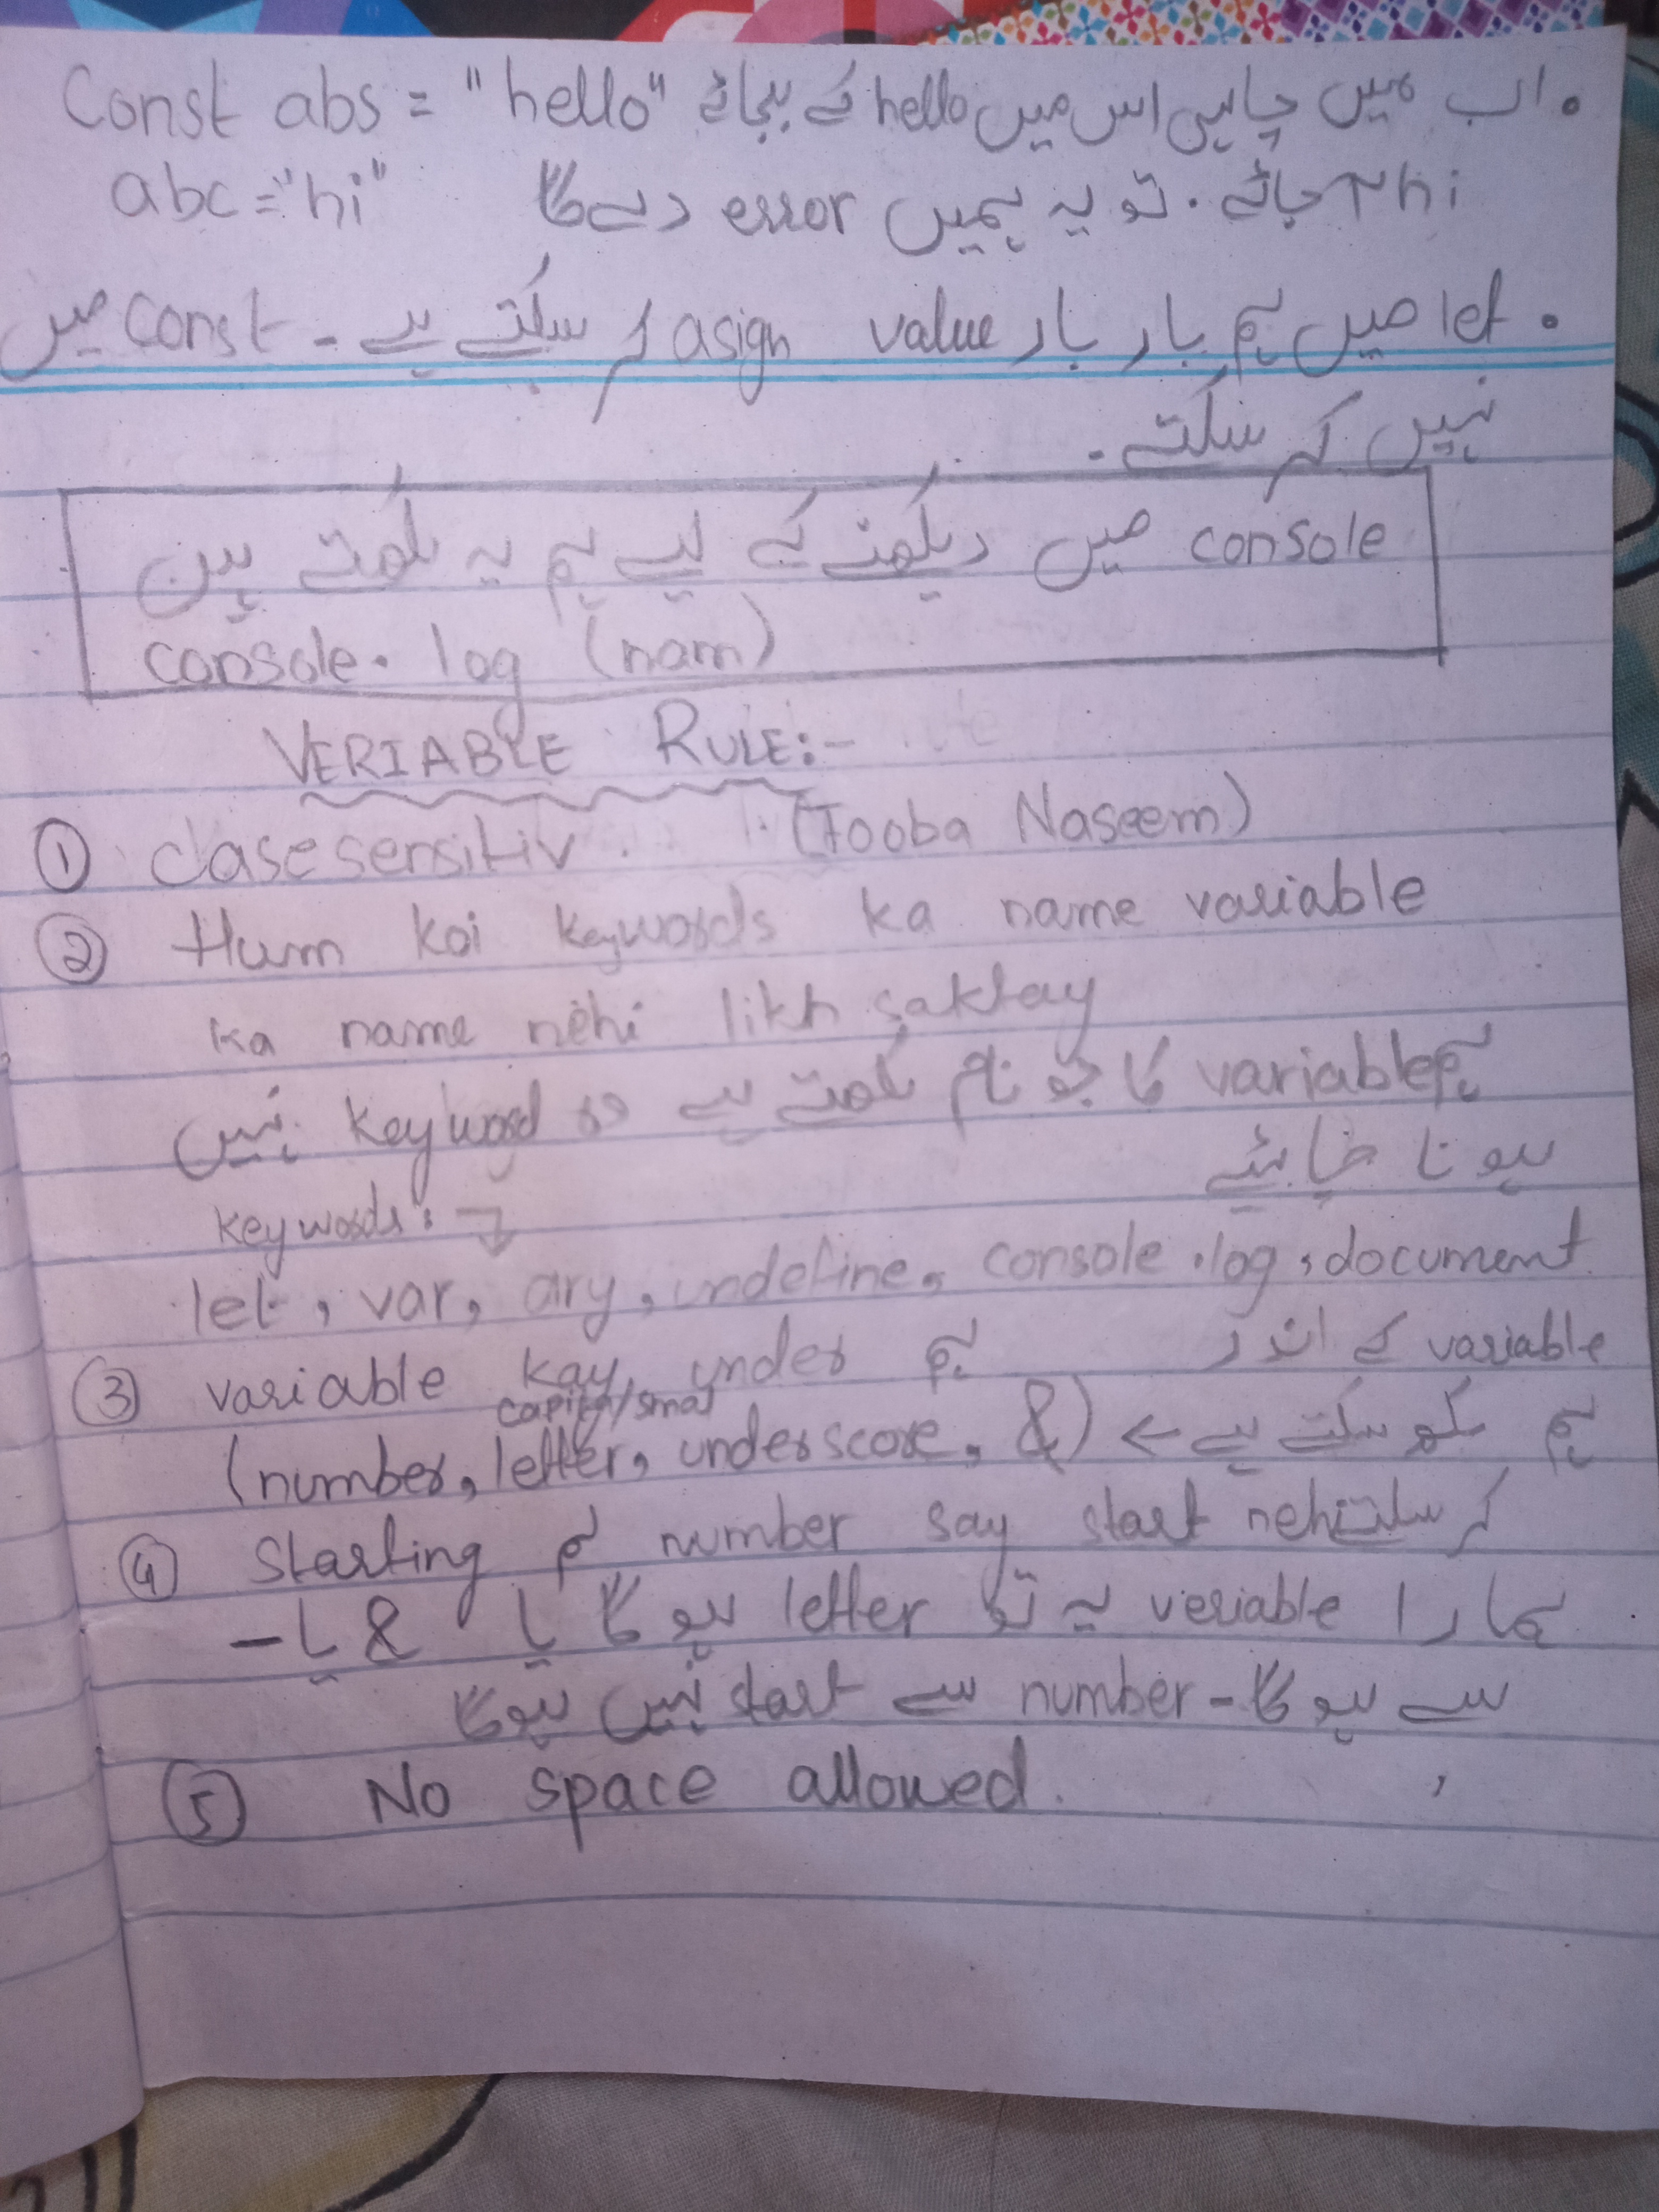 Const abs = "hello" اب ہمیں چاہیں اس میں hello کے بجائے
abc = "hi" hi آ جائے. تو یہ ہمیں error دے گا
• let میں ہم بار بار value asign کر سکتے ہے - const میں
نہیں کر سکتے -
console میں دیکھنے کے لیے ہم یہ لکھتے ہیں
console. log (nam)
VERIABLE RULE:-
① casesensitiv. (Tooba Naseem)
② Hum koi keywords ka name variable
ka name nehi likh saktay
ہم variable کا جو نام لکھتے ہے وہ keyword نہیں
ہونا چاہئے
keywords: ↴
let, var, ary, undefine, console .log, document
③ variable kay under ہم variable کے اندر
capital/smal
(number, letter, underscore, &) ← ہم لکھ سکتے ہے
④ Starting ہم number say start nehi کر سکتے
ہمارا veriable یہ تو letter ہوگا یا & یا _
سے ہوگا - number سے start نہیں ہوگا
⑤ No space allowed.